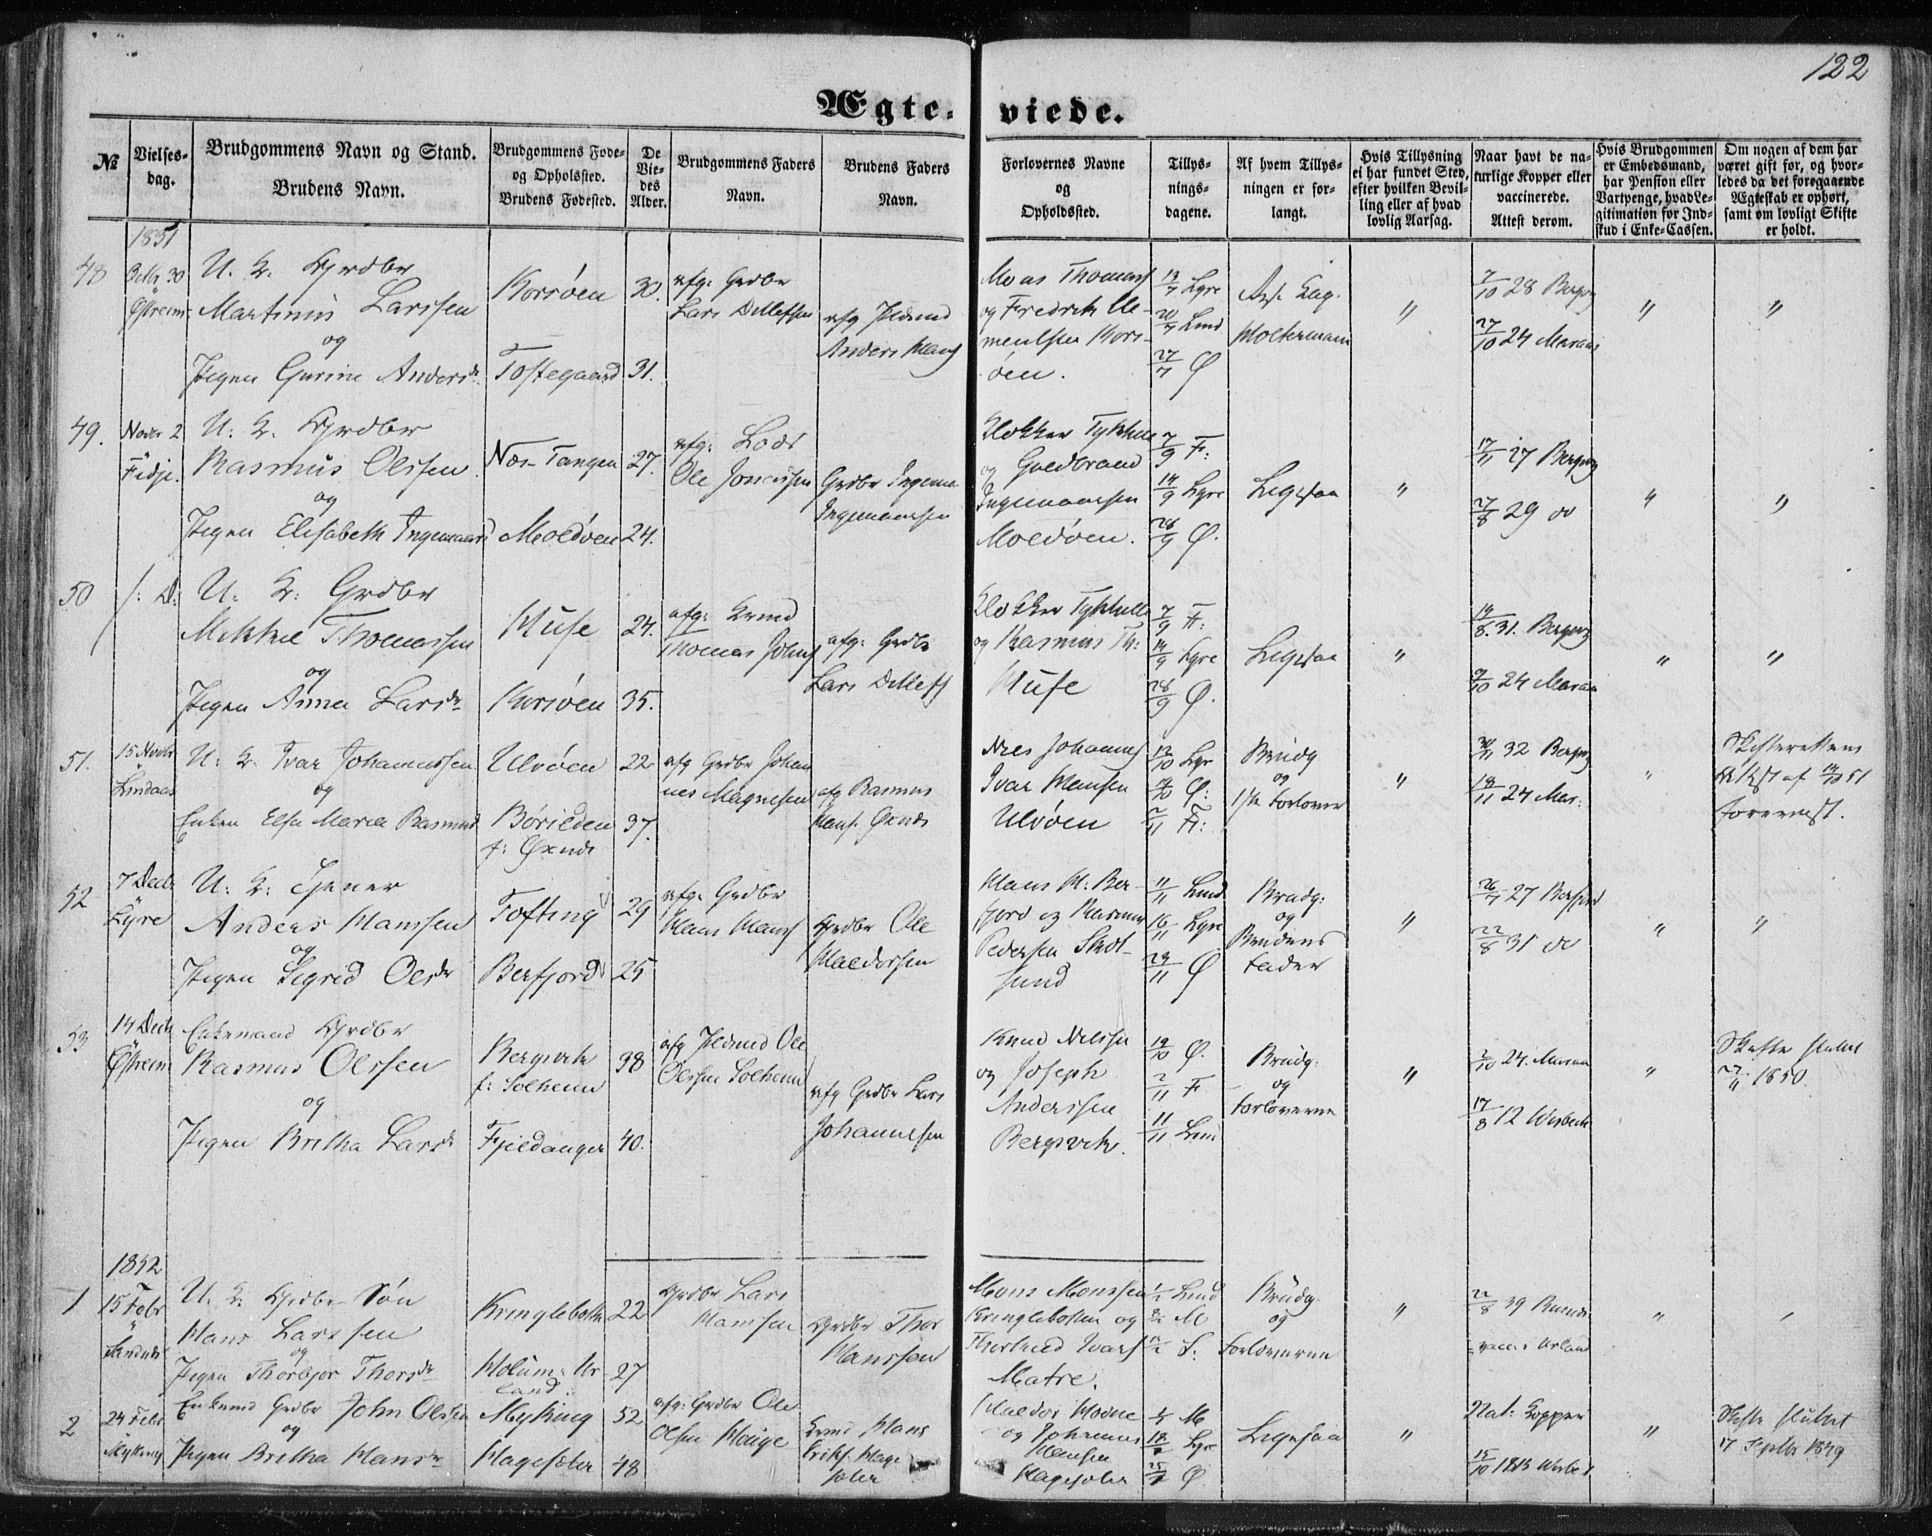 122
Ægte- viede.
№
Vielses-
dag.
Brudgommens Navn og Stand.
Brudens Navn.
Brudgommens Føde-
og Opholdssted.
Brudens Fødested.
De
Vie-
des
Alder.
Brudgommens Faders
Navn.
Brudens Faders
Navn.
Forlovernes Navne
og
Opholdssted.
Tillys-
nings-
dagene.
Af hvem Tillys-
ningen er for-
langt.
Hvis Tillysning
ei har fundet Sted,
efter hvilken Bevil-
ling eller af hvad
lovlig Aarsag.
Naar havt de na-
turlige Kopper eller
vaccinerede.
Attest derom.
Hvis Brudgommen
er Embedsmand,
har Pension eller
Vartpenge, hvad Le-
gitimation for Ind-
skud i Enke-Cassen.
Om nogen af dem har
været gift før, og hvor-
ledes da det foregaaende
Ægteskab er ophørt,
samt om lovligt Skifte
er holdt.
1851
48
Østreim
U. K. Grdbr
Martinus Larssen
og
Pigen Gurine Andersdr
Korsøen
Toftegaard
30.
31.
afg: Grdbr
Lars Detlefsen
afg
Anders Hans
Thomas
og Fredrik Cle-
mentsen Kors-
øen.
13/7 Lyre
20/7 Lind
27/7 Ø
Molterman
"
7/10 28 Berg
27/10 24 Maraus
"
"
49.
Novbr 2
Fedje.
U. K. Grdbr
Rasmus Olssen
og
Pigen Elisabeth Ingemaarsd
Næs Tangen
Moldøen
27.
24.
afg: Lods
Ole Jonassen
Grdbr Ingem
Ingemaarsen
Klokker
og Guldbrand
Ingemaarsen
Moldøen.
7/9 F:
14/9 Lyre
28/9 Ø.
Ligesaa
"
17/11 27 Berg
27/8 29 do
"
"
50
U. K. Grdbr
Mikkel Thomassen
og
Pigen Anna Larsdr
Huse
Korsøen
24.
35.
afg:
Thomas Johns
afg: Grdbr
Lars Detlefs
Klokker
og Rasmus Th:
Huse
7/9 F:
14/9 Lyre
28/9 Ø.
Ligesaa
"
14/8. 31. Berg
9/10 24 Maraus
"
"
51.
15 Novbr
Lindaas
U. K. Ivar Johannessen
og
Enken Elsa Maria Rasmusd
Ulvøen
Børilden
f: Øxnds
22
37.
afg Grdbr Johan
nes Magnesen
afg Rasmus
Hans: Øxnds
Nils Johannes
Ivar Hansen
Ulvøen
12/10 Lyr
19/10 Ø:
2/11 F:
Brudg
og
1ste Forlover
"
32 Berg
18/11 24 Mar:
"
Skifterettens
Attest af 14/10 51
forevist.
52
7 Decbr
Lyre
U. K. Tjener
Anders Hanssen
og
Pigen Sigrid Olsdr
Tofting
Berfjord
29
25
afg: Grdbr
Hans Hans
Grdbr Ole
Haldorsen
Hans H. Ber-
fjord og Rasmus
Pedersen Skot-
sund
11/11 Lind
16/11 Lyre
23/11 Ø
Brudg:
og
Brudens
Fader
"
26/7 27 Berfjord
22/8 31 do
"
"
53
14 Decbr
Østreim
Enkemand Grdbr
Rasmus Olssen
og
Pigen Britha Larsdr
Bergsvik
f: Solheim
Fjeldanger
38
40.
afg Ole
Olssen Solheim
afg Grdbr Lars
Johannesen
Knud Nilssen
og Joseph
Anderssen
Bergsvik.
19/10 Ø.
2/11 F
11/11 Lind
Brudg:
og
Forloverne
"
2/10 24. Maraus
17/8 12 Wesbech
"
Skifte sluttet
27/11 1850.
1852
1
15 Febr
U. K. Grdbr Søn
Hans Larssen
og
Pigen Thorbjør Thorsdr
Kringlebotn
Holum: Ur
land
22
27
Grdbr Lars
Hansen
Grdbr Thor
Hanssen
Mons Monssen
Kringlebotten og
Ivars
Matre.
1/2 Lind
8/2 M
S:
Brudg
og
Forloverne
"
22/8 39
Urland
"
"
2
24 Febr
Mykling
Enkemd Grdbr John Olssen
og
Pigen Britha Hansdr
Myking
Hagesæter
52
48
afg: Grdbr Ole
Olsen Hauge
Hans
Eriks: Hage
sæter
Haldor Hodne
og Johannes
Hansen
Hagesæter
M
Lyre
Ø
Ligesaa
"
Nat: Kopper
15/10 1813
"
Skifte sluttet
17 Septbr 1849